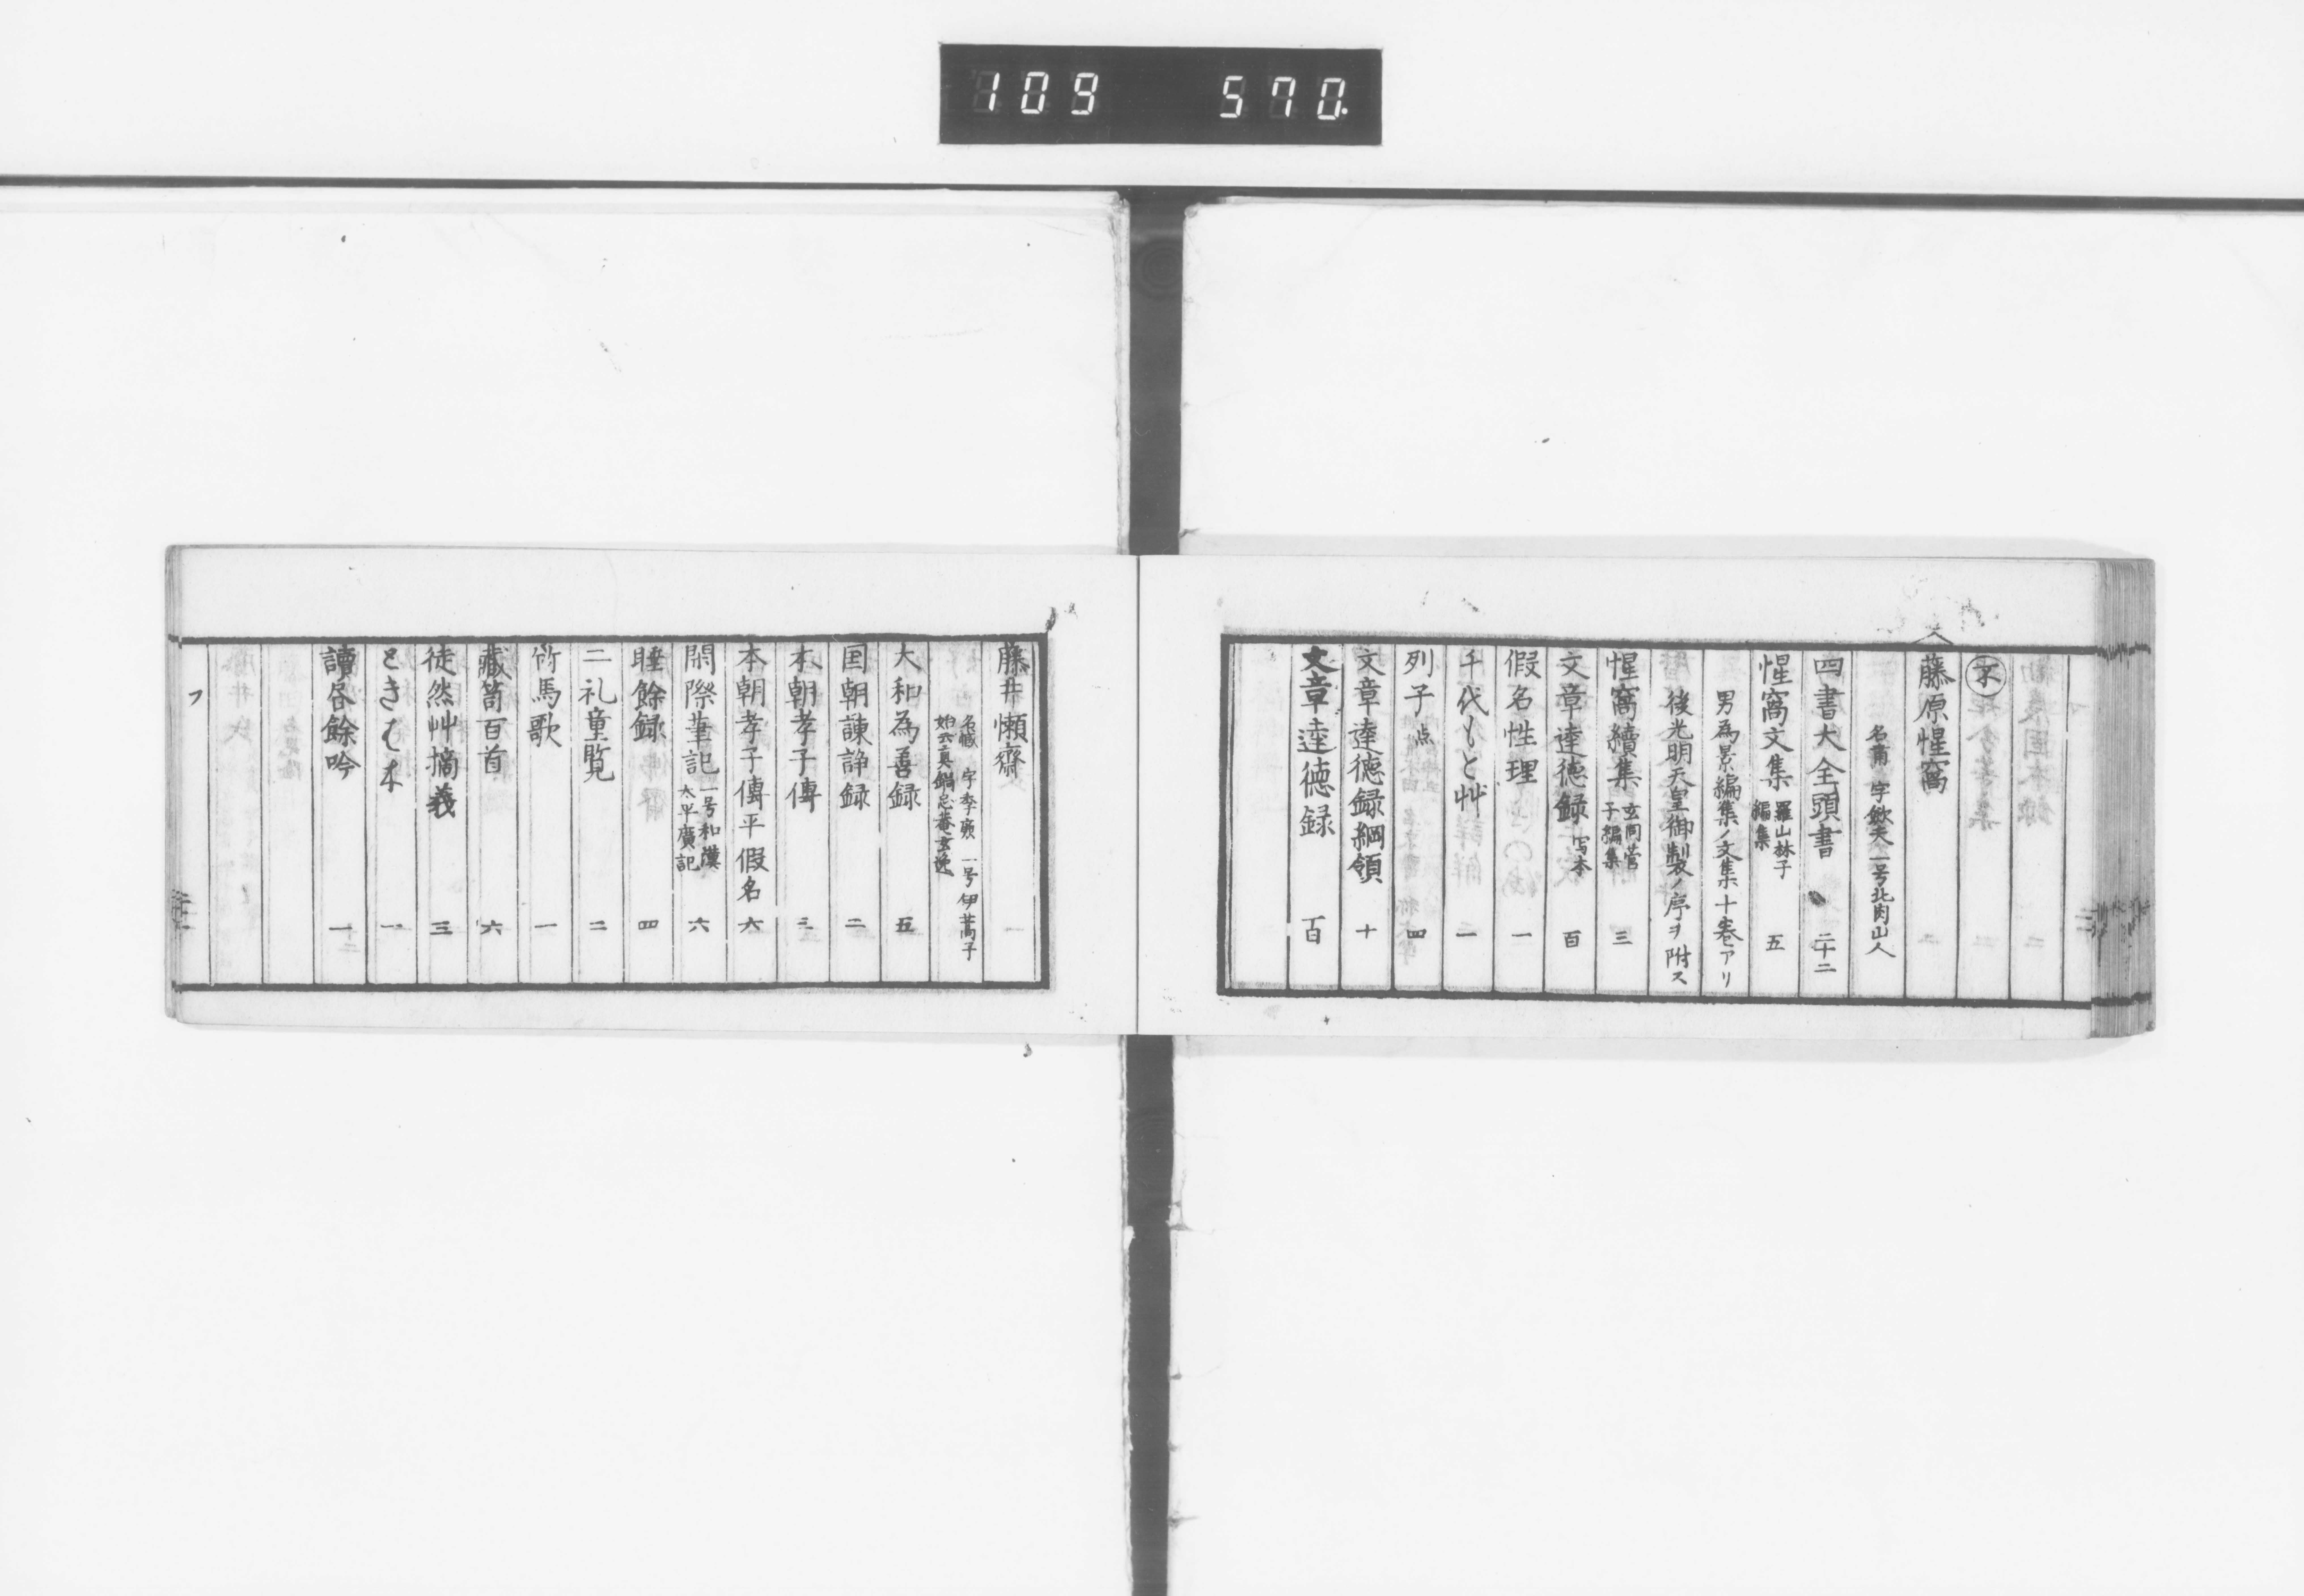 109 570.
不
藤原惺窩
名肅 字歛夫 一号北肉山人
四書大全頭書 二十二
惺窩文集 羅山林子編集 五
男為景編集ノ文集十巻アリ
後光明天皇御製ノ序ヲ附ス
惺窩續集 玄同菅子編集 三
文章達德録 写本 百
假名性理 一
千代もと艸 一
列子 点 四
文章達德録綱領 十
文章達徳録 百
藤井懶齋
名臧 字季廉 一号伊蒿子
始云真鍋忠菴玄逸
大和為善録 五
国朝諌諍録 二
本朝孝子傳 三
本朝孝子傳平假名 六
閑際筆記 一号和漢太平廣記 六
睡餘録 四
二礼童覧 二
竹馬歌 一
藏笥百首 六
徒然艸摘義 三
ときは木 一
讀咎餘吟 一
フ